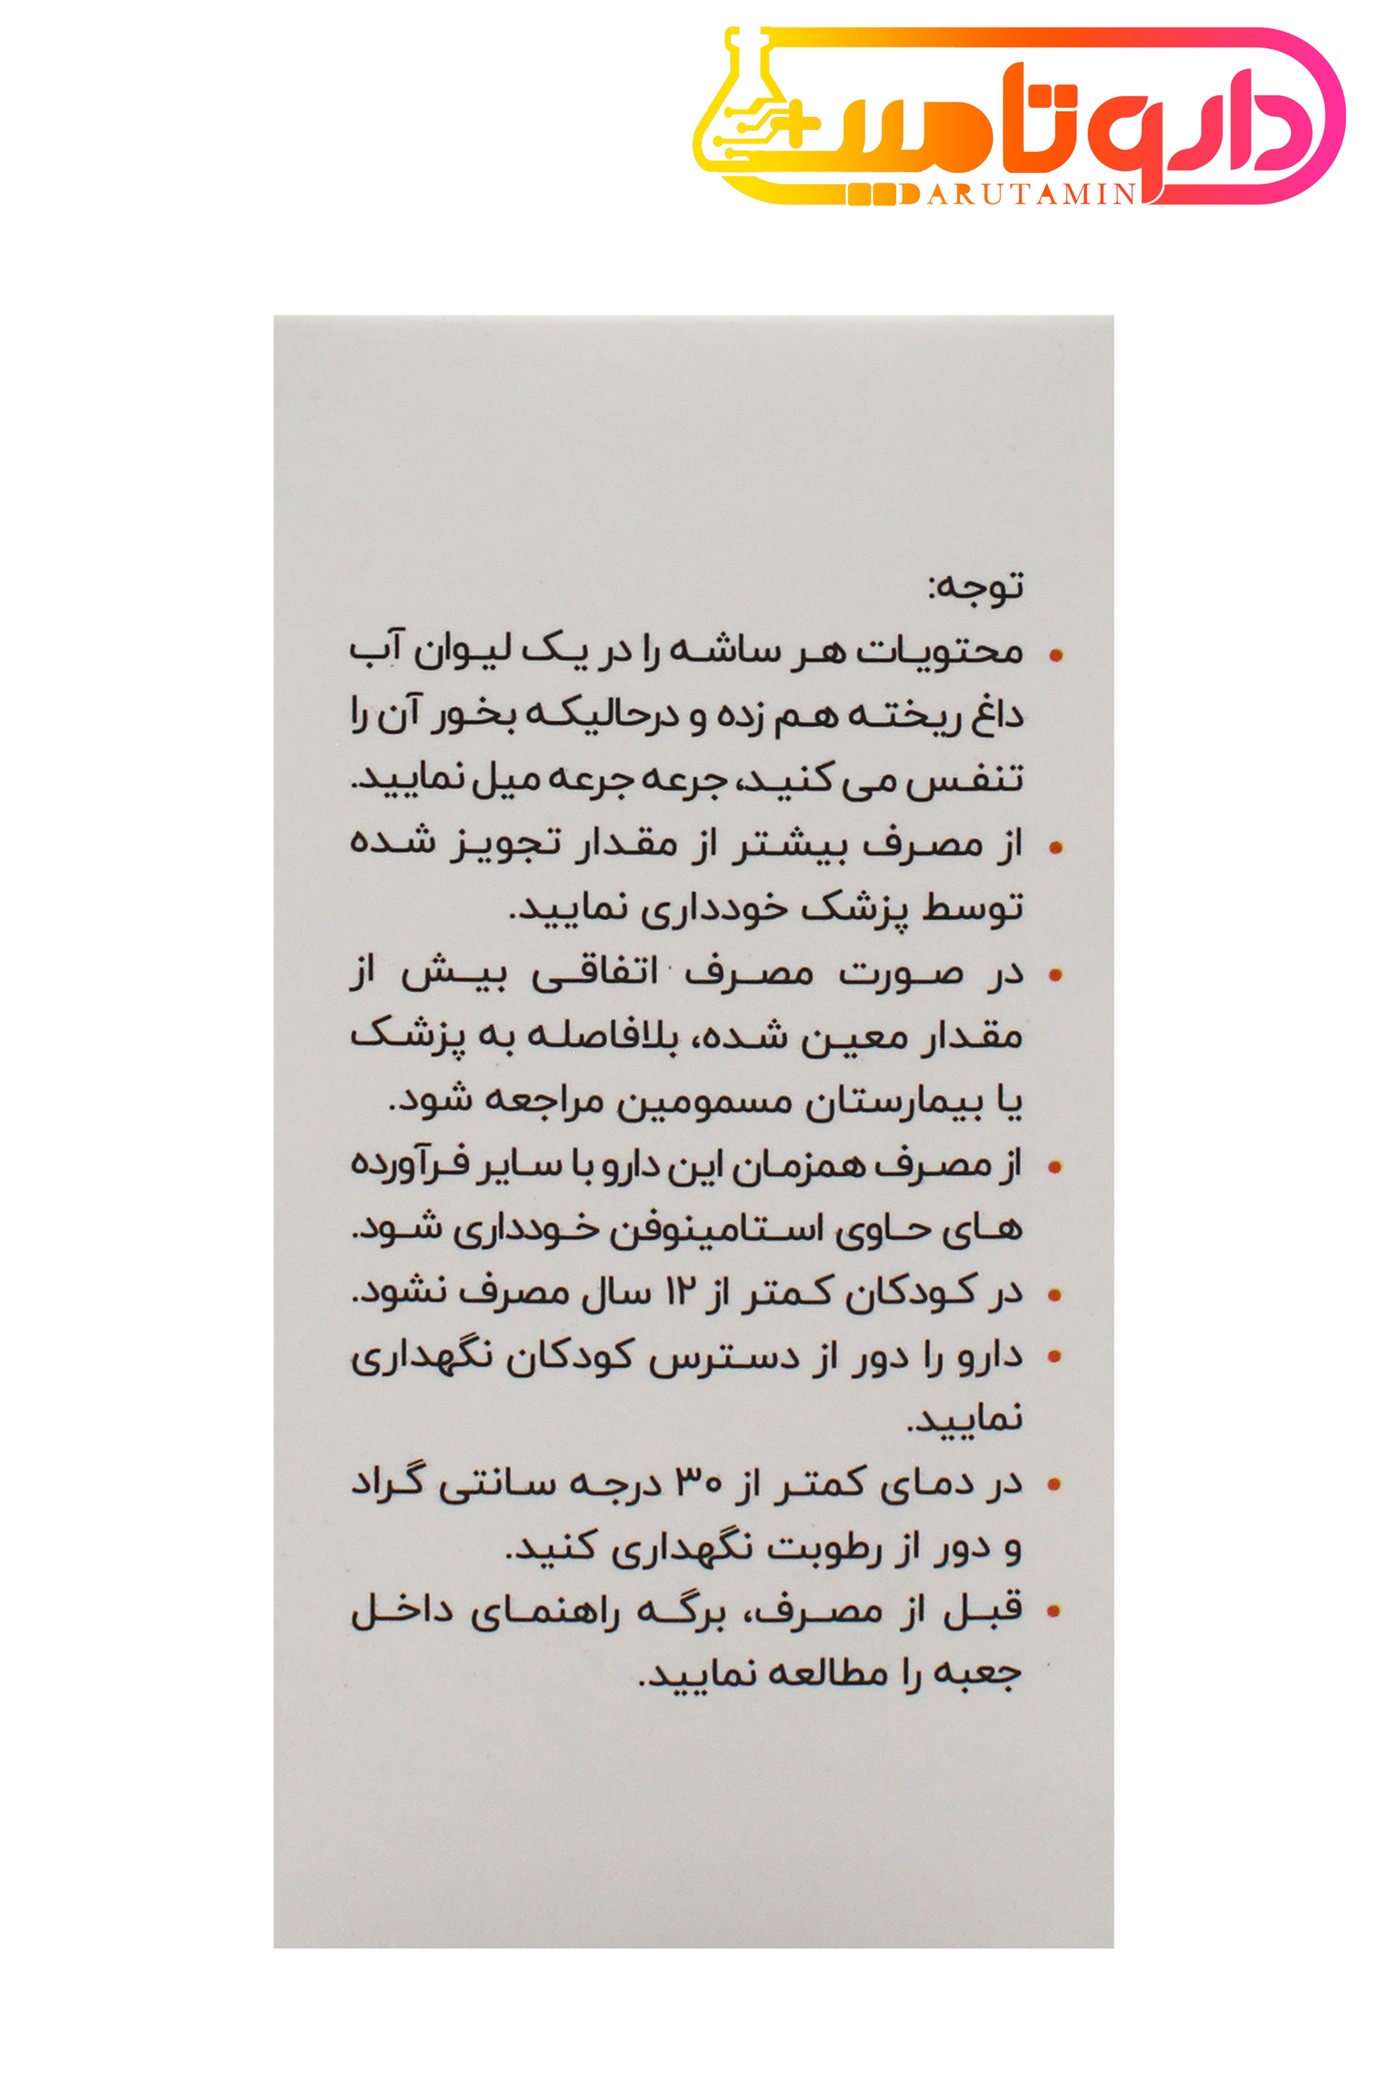 داروتامین
DARUTAMIN
توجه:
• محتویات هر ساشه را در یک لیوان آب
داغ ریخته هم زده و درحالیکه بخور آن را
تنفس می کنید، جرعه جرعه میل نمایید.
• از مصرف بیشتر از مقدار تجویز شده
توسط پزشک خودداری نمایید.
• در صورت مصرف اتفاقی بیش از
مقدار معین شده، بلافاصله به پزشک
یا بیمارستان مسمومین مراجعه شود.
• از مصرف همزمان این دارو با سایر فرآورده
های حاوی استامینوفن خودداری شود.
• در کودکان کمتر از ۱۲ سال مصرف نشود.
• دارو را دور از دسترس کودکان نگهداری
نمایید.
• در دمای کمتر از ۳۰ درجه سانتی گراد
و دور از رطوبت نگهداری کنید.
• قبل از مصرف، برگه راهنمای داخل
جعبه را مطالعه نمایید.